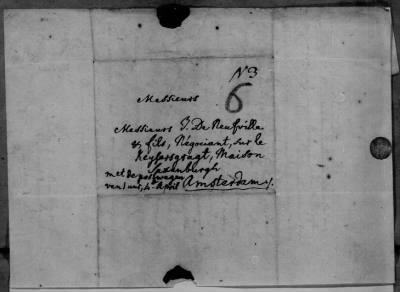 N 3
6
Messieurs
Messieurs J. De Neufville
& fils, Négociant, sur le
Keysersgragt, Maison
Saxenburgh
met de postwagen
van 1 uur, 4 april Amsterdam